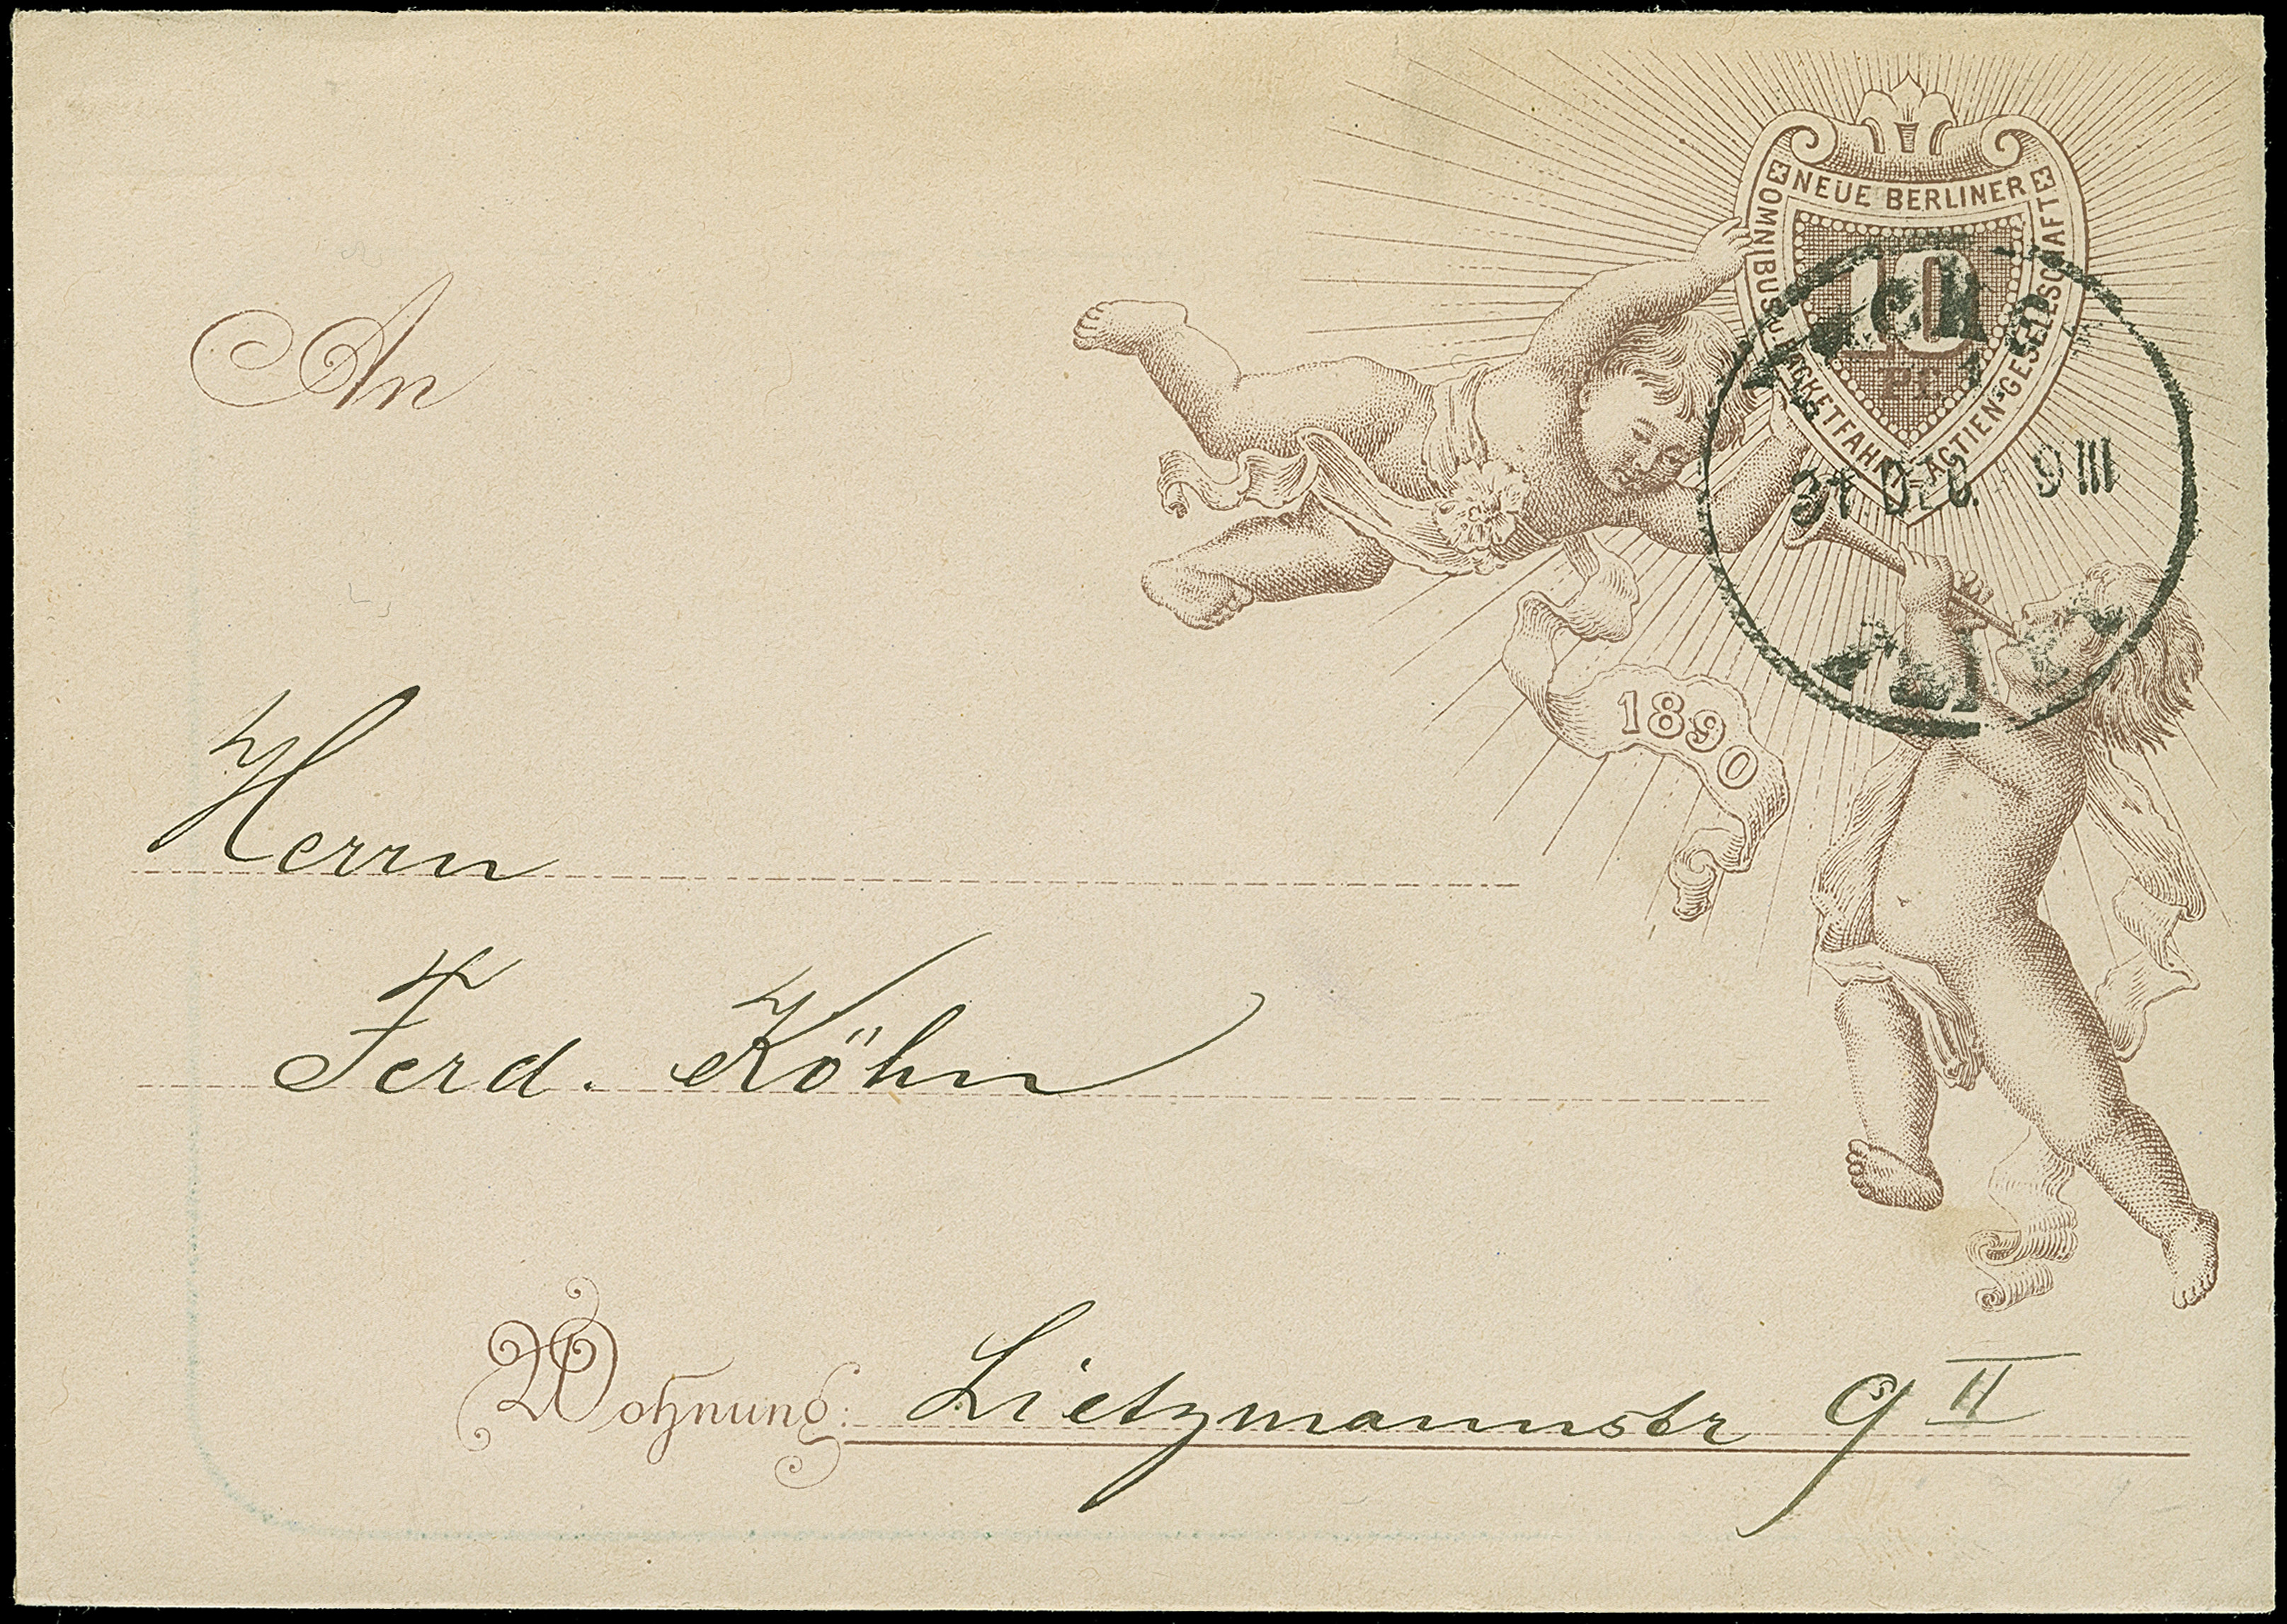 NEUE BERLINER
OMNIBUS- U. PACKETFAHRT-ACTIEN-GESELLSCHAFT
10
Pf.
31 DEC. 9 III
1890
An
Herrn
Ferd. Köhn
Wohnung: Lietzmannstr 9 II